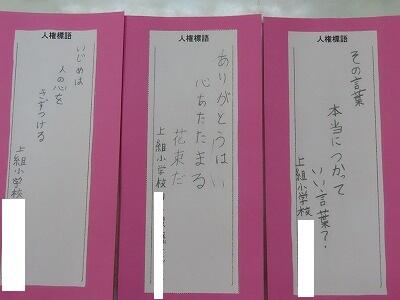 人権標語
その言葉
本当につかって
いい言葉？
上組小学校
人権標語
ありがとうはい
心あたたまる
花束だ
上組小学校
人権標語
いじめは
人の心を
きずつける
上組小学校